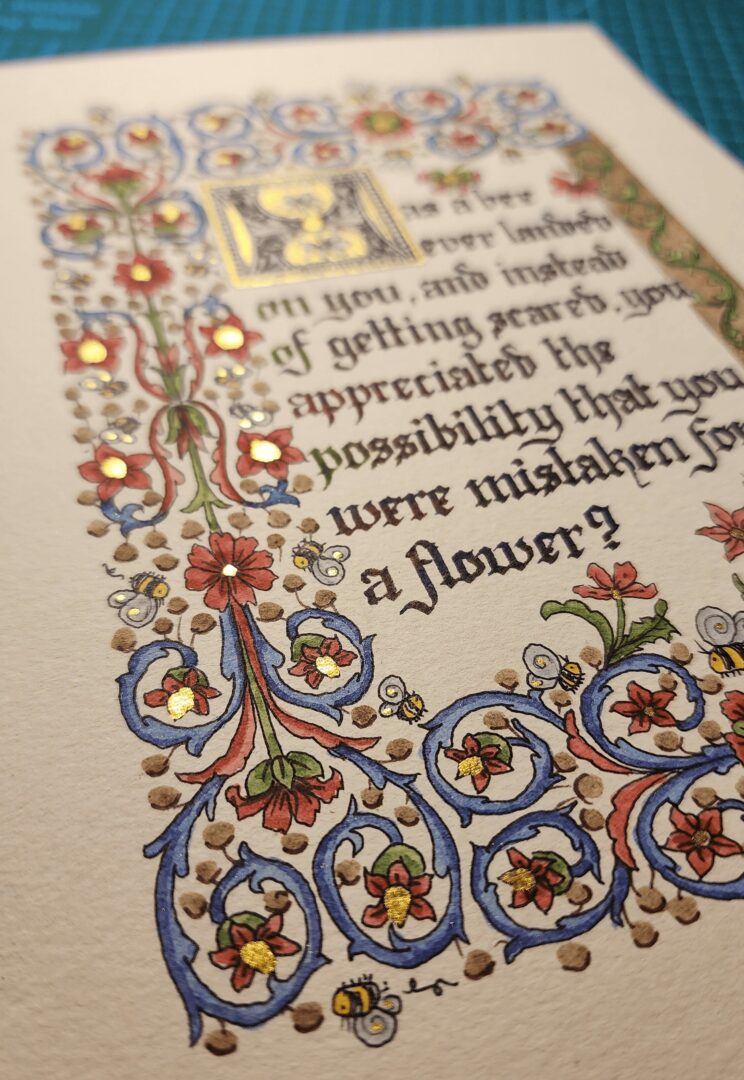 Has a bee
ever landed
on you, and instead
of getting scared, you
appreciated the
possibility that you
were mistaken for
a flower?